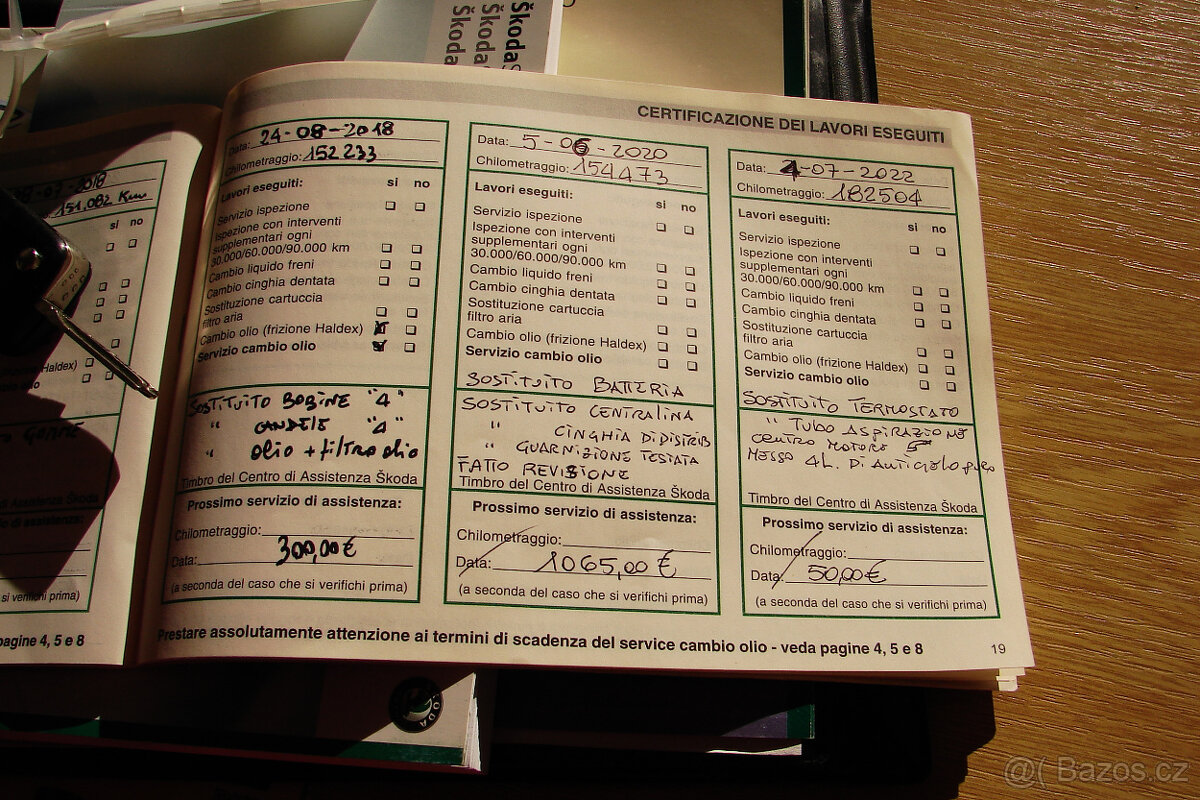 Škoda
Škoda
ŠkodaS
CERTIFICAZIONE DEI LAVORI ESEGUITI
-07-2018
151.082 Km
si no
Haldex)
olio
di Assistenza Škoda
di assistenza:
si verifichi prima)
pagine 4, 5 e 8
Data: 24-08-2018
Chilometraggio: 152233
Lavori eseguiti: si no
Servizio ispezione
Ispezione con interventi
supplementari ogni
30.000/60.000/90.000 km
Cambio liquido freni
Cambio cinghia dentata
Sostituzione cartuccia
filtro aria
Cambio olio (frizione Haldex)
Servizio cambio olio
SOSTITUITO BOBINE "4"
" CANDELE "4"
" olio + filtro olio
Timbro del Centro di Assistenza Škoda
Prossimo servizio di assistenza:
Chilometraggio:
300,00€
Data:
(a seconda del caso che si verifichi prima)
Data: 5-06-2020
Chilometraggio: 154473
Lavori eseguiti: si no
Servizio ispezione
Ispezione con interventi
supplementari ogni
30.000/60.000/90.000 km
Cambio liquido freni
Cambio cinghia dentata
Sostituzione cartuccia
filtro aria
Cambio olio (frizione Haldex)
Servizio cambio olio
SOSTITUITO BATTERIA
SOSTITUITO CENTRALINA
" CINGHIA DI DISTRIB
" GUARNIZIONE TESTATA
FATTO REVISIONE
Timbro del Centro di Assistenza Škoda
Prossimo servizio di assistenza:
Chilometraggio:
Data: 1065,00 €
(a seconda del caso che si verifichi prima)
Data: 4-07-2022
Chilometraggio: 182504
Lavori eseguiti: si no
Servizio ispezione
Ispezione con interventi
supplementari ogni
30.000/60.000/90.000 km
Cambio liquido freni
Cambio cinghia dentata
Sostituzione cartuccia
filtro aria
Cambio olio (frizione Haldex)
Servizio cambio olio
SOSTITUITO TERMOSTATO
" TUBO ASPIRAZIONE
CENTRO MOTORE
MESSO 4L. DI ANTIGIELO puro
Timbro del Centro di Assistenza Škoda
Prossimo servizio di assistenza:
Chilometraggio:
Data: 50,00€
(a seconda del caso che si verifichi prima)
Prestare assolutamente attenzione ai termini di scadenza del service cambio olio - veda pagine 4, 5 e 8
19
SKODA
@( Bazos.cz